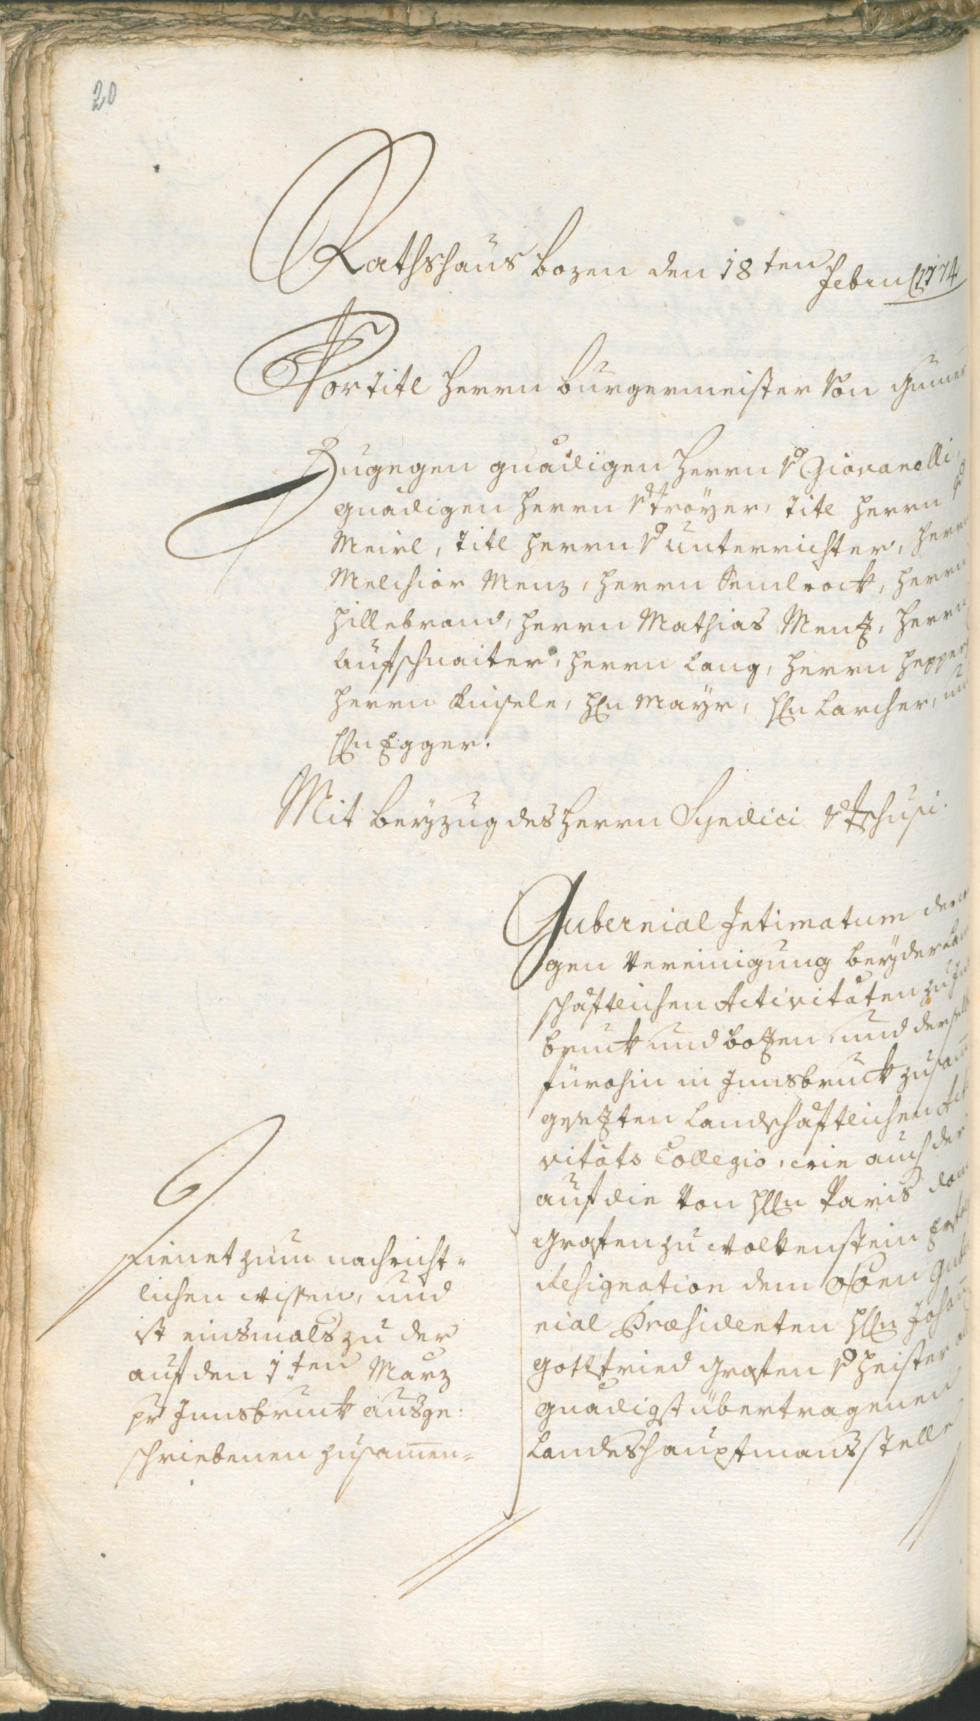 20
Rathshaus Bozen den 18ten
Febru 1774
Vor Titl Herrn Burgermeister von Gumer
Zugegen gnädigen Herrn v Giovanelli,
gnädigen Herrn v Troyer, Titl Herrn v
Meirl, Titl Herrn v Unterrichter, Herrn
Melchior Menz, Herrn Hendl
Hillebrand, Herrn Mathias Menz, Herrn
Aufschnaiter, Herrn Lang, Herrn Hepper
Herrn Kinsele, Hn Mayr, Hn Larcher, und
Hn Egger.
Mit Beyzug des Herrn Syndici v Tschusi.
Gubernial Intimatum der
gen Vereinigung beyder Land
schäftlichen Activitäten zu Inns
bruck und Bozen und derselb
fürohin in Innsbruck zusam
gesezten Landschäftlichen Acti
vitäts Collegio, wie auch der
auf die von Hn Paris
Grafen zu Wolkenstein
Resignation dem Guber
nial Præsidenten Hn Johann
Gottfried Grafen v Heister
gnädigst übertragenen
Landeshauptmanns stelle
Dienet zum nachricht-
lichen wissen, und
ist einsmals zu der
auf den 1ten Marz
pr Innsbruck ausge:
schriebenen zusamen-